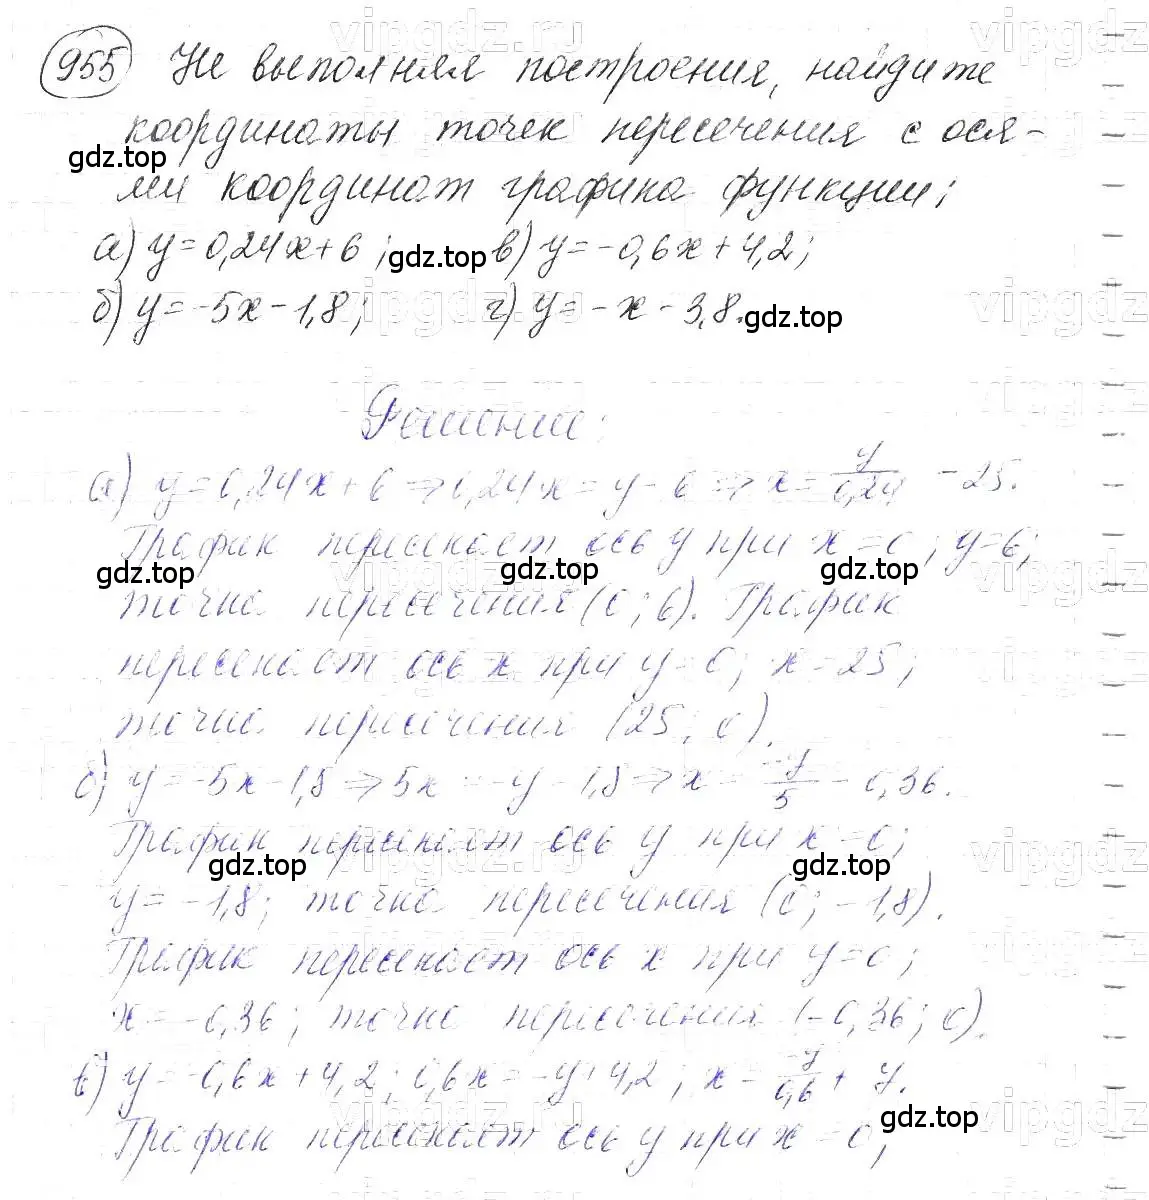 955 Не выполняя построения, найдите
координаты точек пересечения с ося-
ми координат графика функции:
а) y=0,24x+6; в) y=-0,6x+4,2;
б) y=-5x-1,8; г) y=-x-3,8.
Решение:
а) y=0,24x+6 ⇒ 0,24x=y-6 ⇒ x= y/0,24 -25.
График пересекает ось y при x=0; y=6;
точка пересечения (0; 6). График
пересекает ось x при y=0; x=25;
точка пересечения (25; 0).
б) y=-5x-1,8 ⇒ 5x=-y-1,8 ⇒ x= -y/5 -0,36.
График пересекает ось y при x=0;
y=-1,8; точка пересечения (0; -1,8).
График пересекает ось x при y=0;
x=-0,36; точка пересечения (-0,36; 0).
в) y=-0,6x+4,2; 0,6x=-y+4,2; x= -y/0,6 + 7.
График пересекает ось y при x=0;
gdz.top
gdz.top
gdz.top
gdz.top
gdz.top
gdz.top
gdz.top
gdz.top
gdz.top
vipgdz.ru